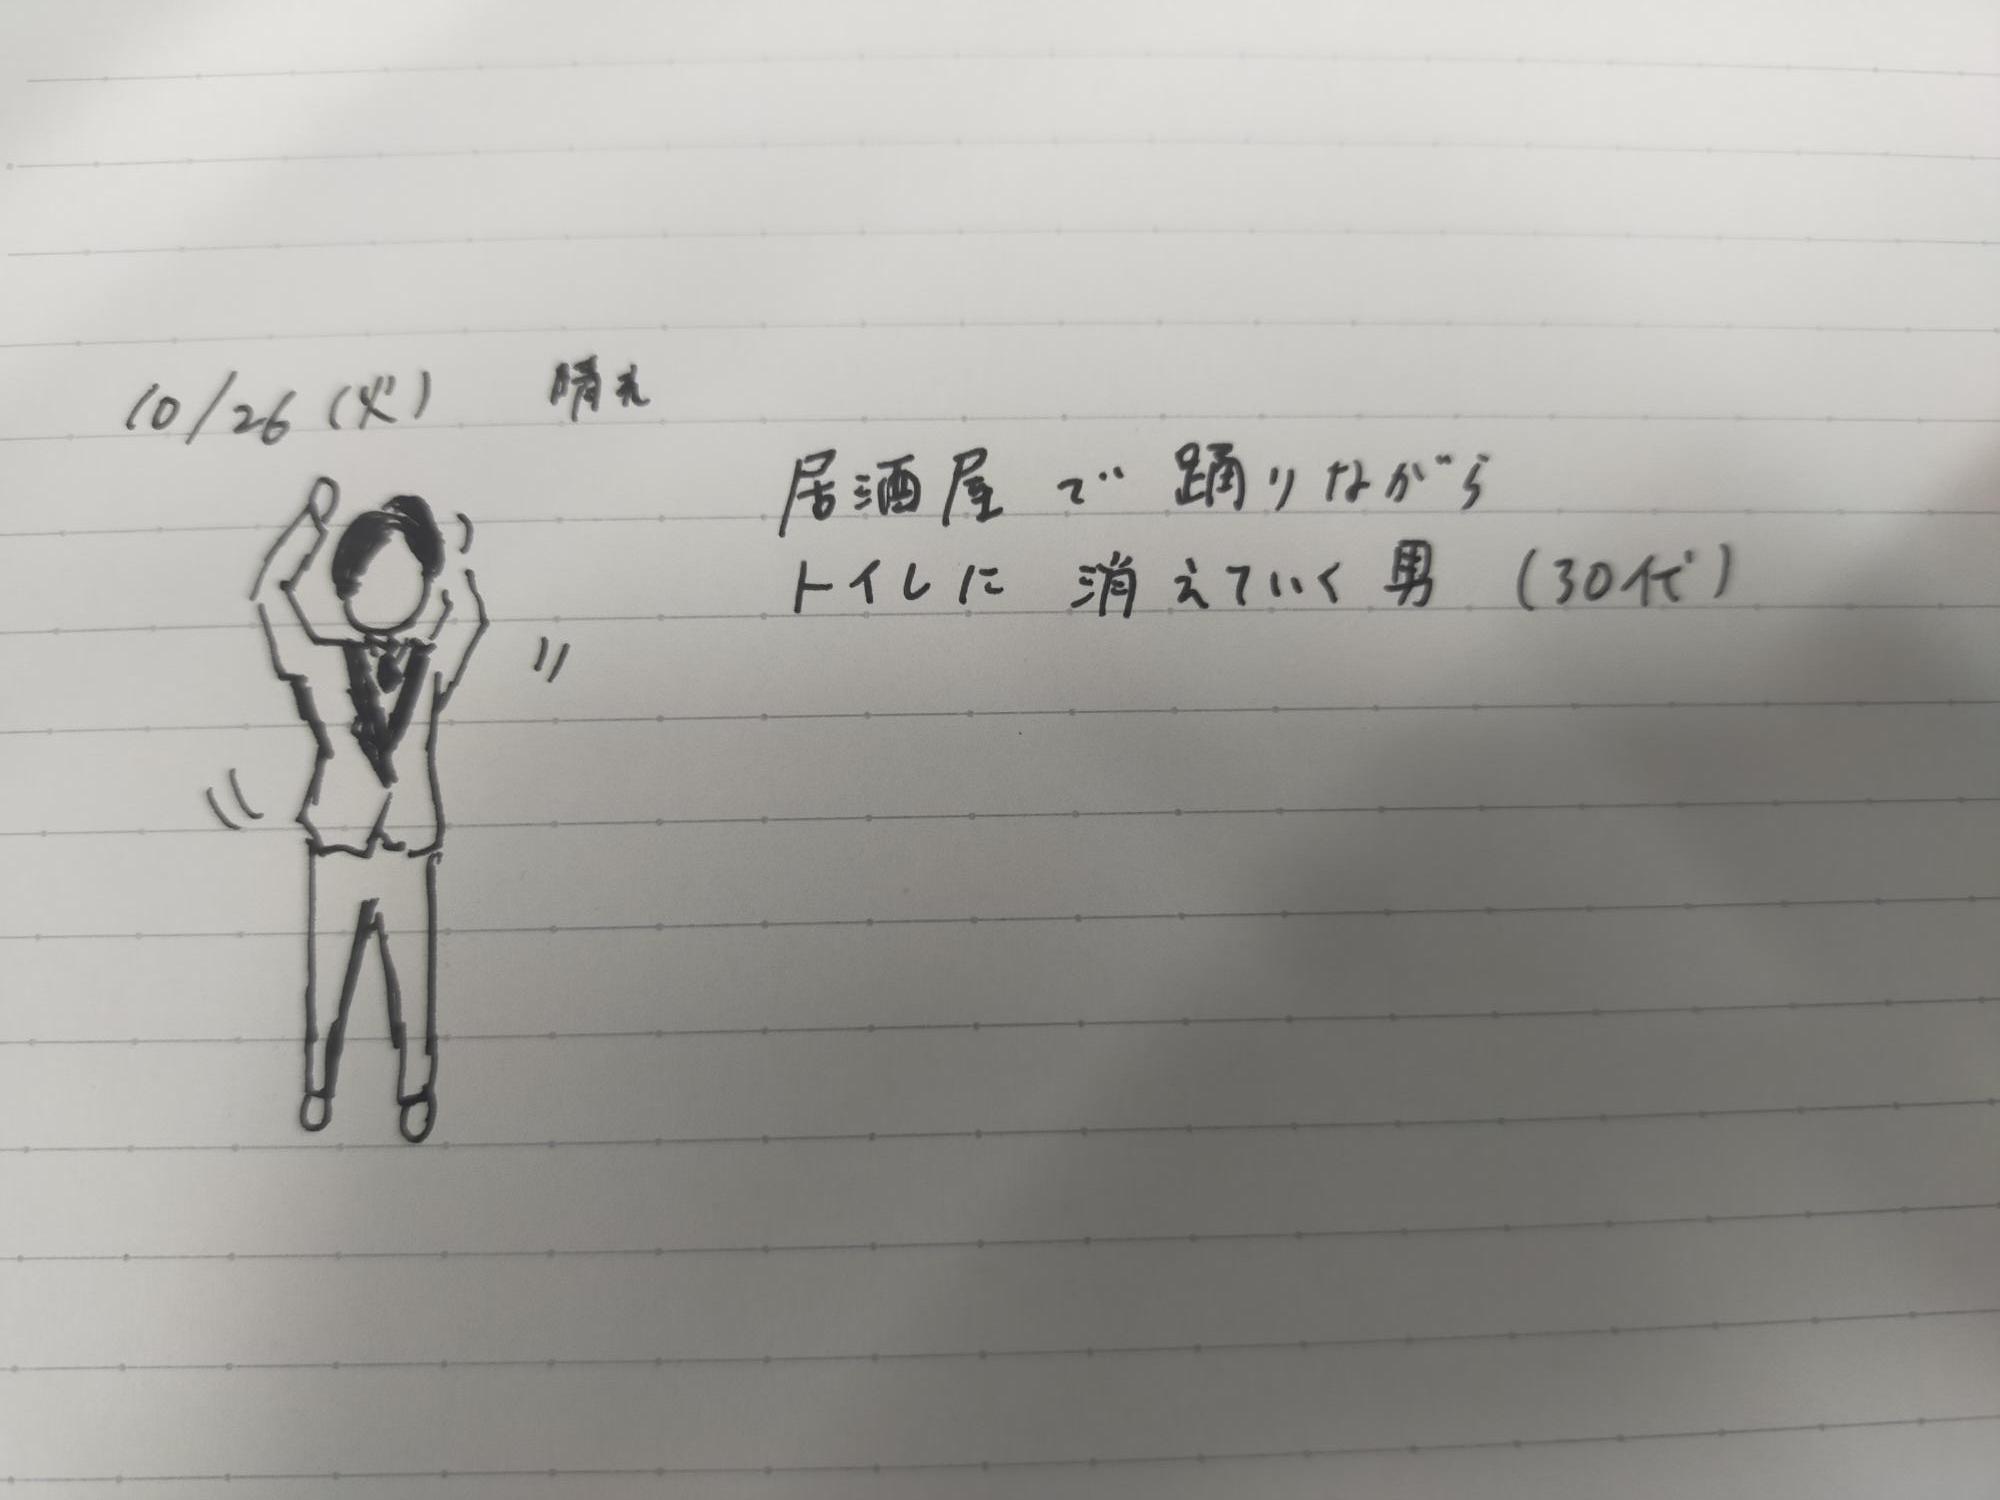 10/26(火) 晴れ
居酒屋で踊りながら
トイレに消えていく男(30代)